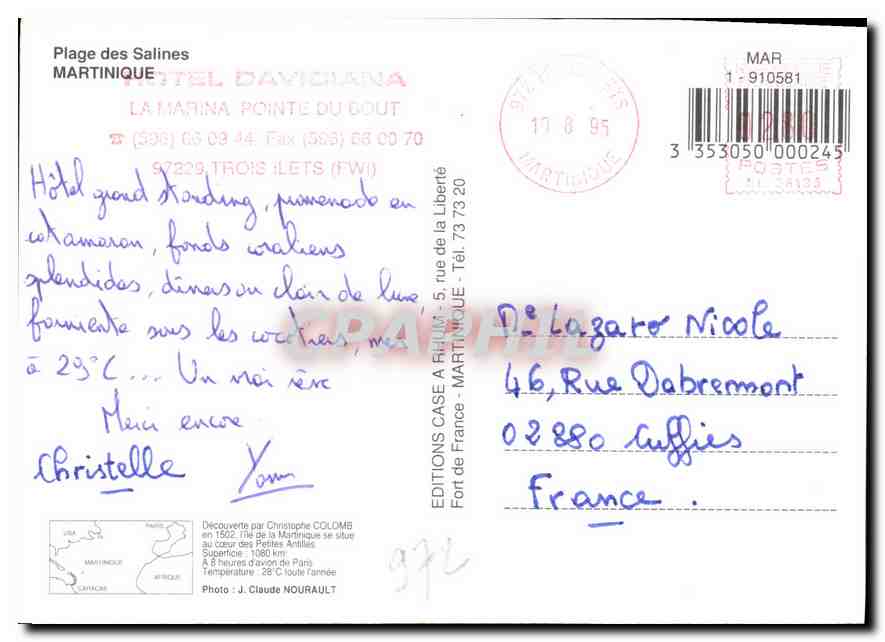 Plage des Salines
MARTINIQUE
HOTEL DAVIDIANA
LA MARINA POINTE DU BOUT
☎ (596) 66 09 44 Fax (596) 66 00 70
97229 TROIS ILETS (FWI)
Hôtel grand standing, promenade en
catamaran, fonds coraliens
splendides, diners au clair de lune,
farniente sous les cocotiers, mer
à 29°C... Un vrai rêve
Merci encore
Christelle Yann
Découverte par Christophe COLOMB
en 1502, l'île de la Martinique se situe
au cœur des Petites Antilles
Superficie : 1080 km²
A 8 heures d'avion de Paris
Température : 28°C toute l'année
Photo : J. Claude NOURAULT
USA
PARIS
MARTINIQUE
CARACAS
AFRIQUE
972
EDITIONS CASE A RHUM - 5, rue de la Liberté
Fort de France - MARTINIQUE - Tél. 73 73 20
CPAPHIL
19 8 95
MARTINIQUE
MAR
1 - 910581
0280
3 353050 000245
POSTES
Dr Lazaro Nicole
46, Rue Dabremont
02880 Cuffies
France.